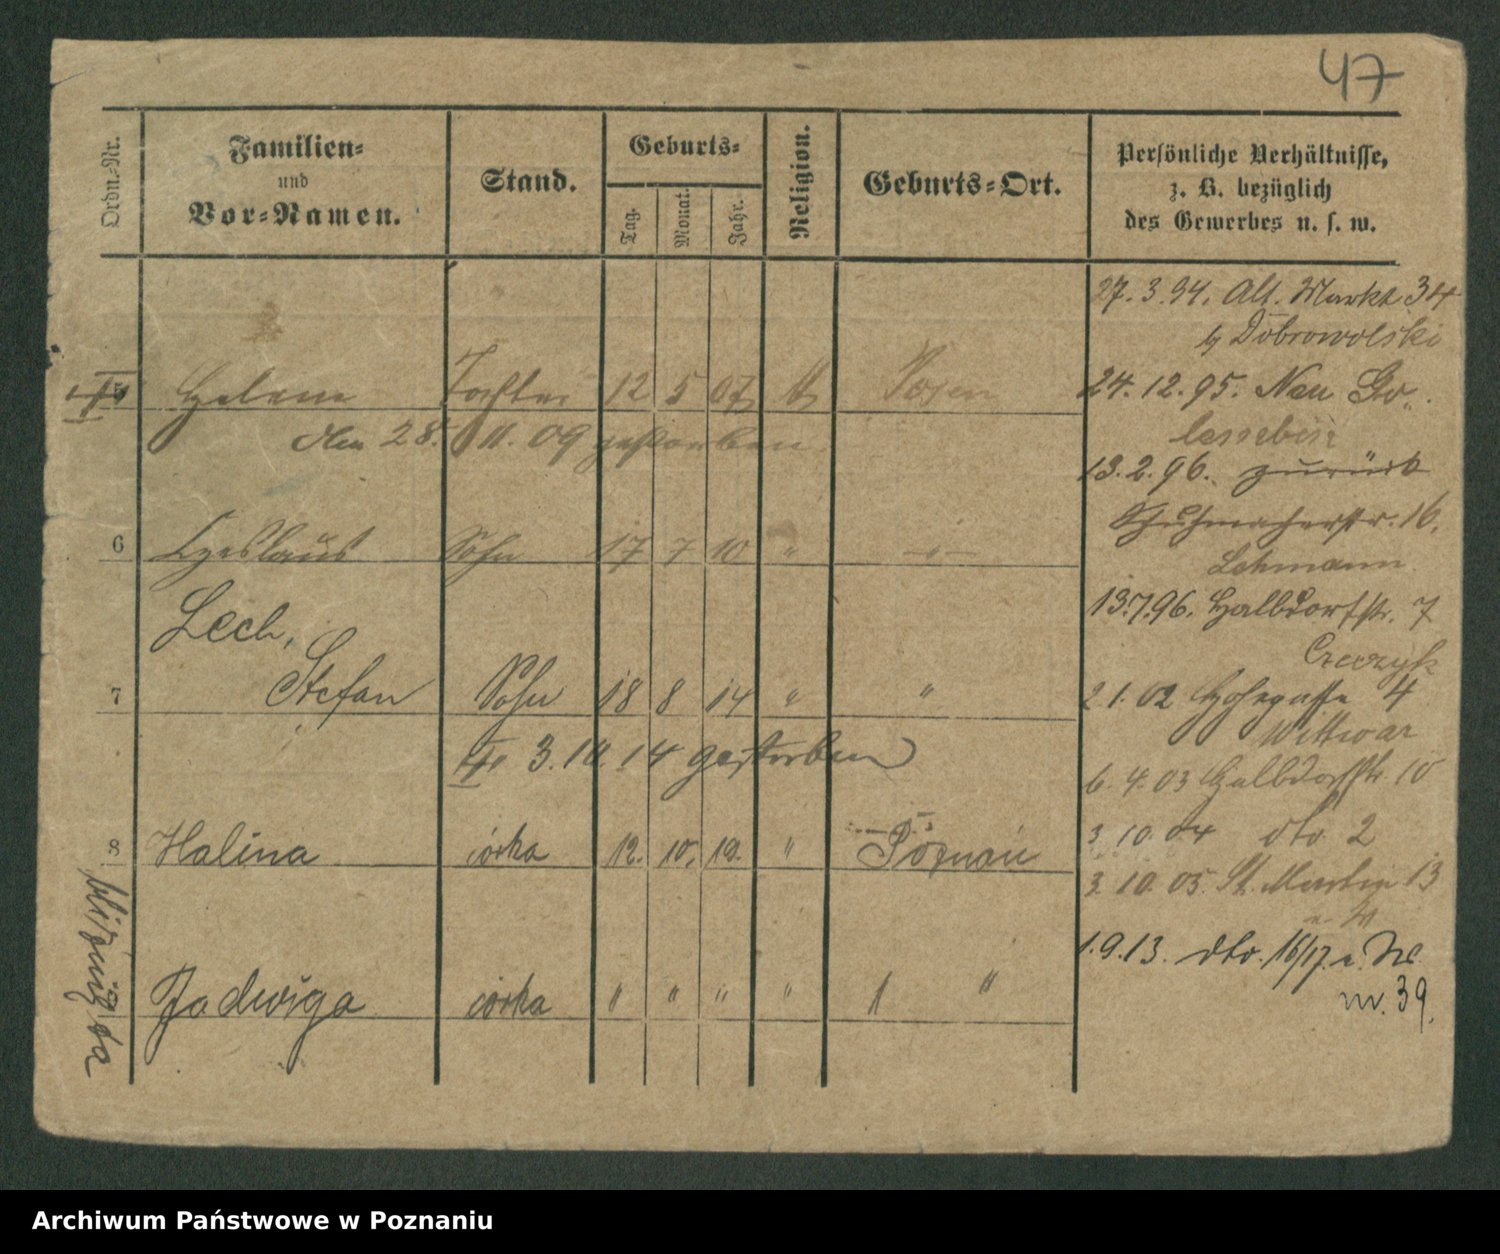 47
Ordn.-Nr.
Familien-
und
Vor-Namen.
Stand.
Geburts-
Tag.
Monat.
Jahr.
Religion.
Geburts-Ort.
Persönliche Verhältnisse,
z. B. bezüglich
des Gewerbes u. s. w.
5 Helene Tochter 12 5 07 Posen
den 28. 11. 09 gestorben
6 Czeslaus Sohn 17 7 10 " "
Lech,
7 Stefan Sohn 18 8 14 " "
3. 10. 14 gestorben
8 Halina córka 12. 10. 19. " Poznań
bliźnięta
Jadwiga córka " " " " "
27. 3. 94. Alt. Markt 34
b/ Dobrowolski
24. 12. 95. Neu Go„
lessebin
13. 2. 96. zurück
Schuhmacherstr. 16.
Lehmann
13.7.96. Halbdorfstr. 7
2 1. 02 Hohegasse 4
Wittwar
6. 4. 03 Halbdorfstr 10
3 10. 04 dto 2
3. 10. 05. St. Martin 13
1. 9. 13. dto. 16/17.
nr. 39.
Archiwum Państwowe w Poznaniu